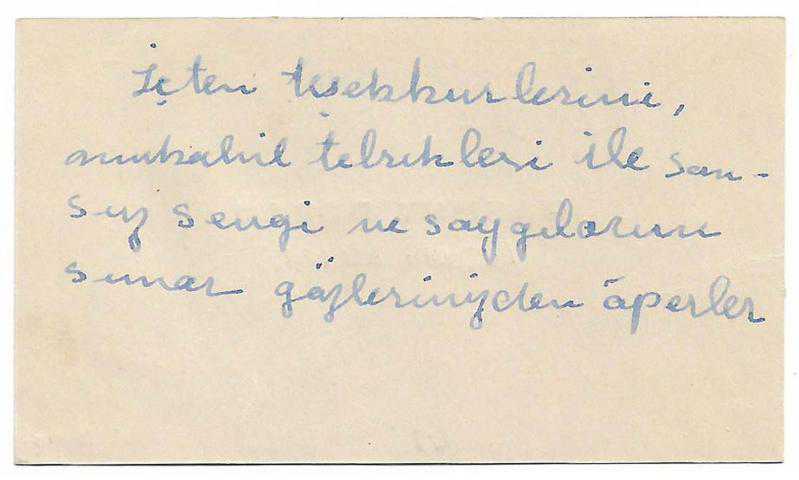 İçten teşekkurlerini,
mukabil tebrikleri ile son-
suz sevgi ve saygılarını
sunar gözlerinizden öperler